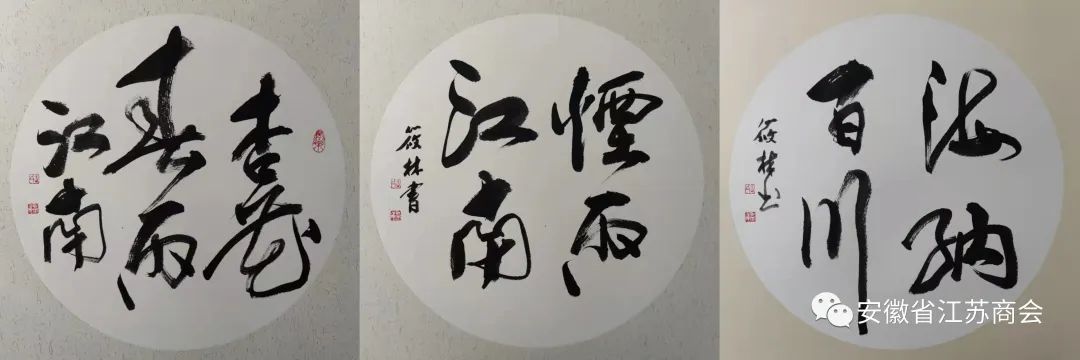 杏花
春雨
江南
煙雨
江南
筱林書
海纳
百川
筱林书
安徽省江苏商会